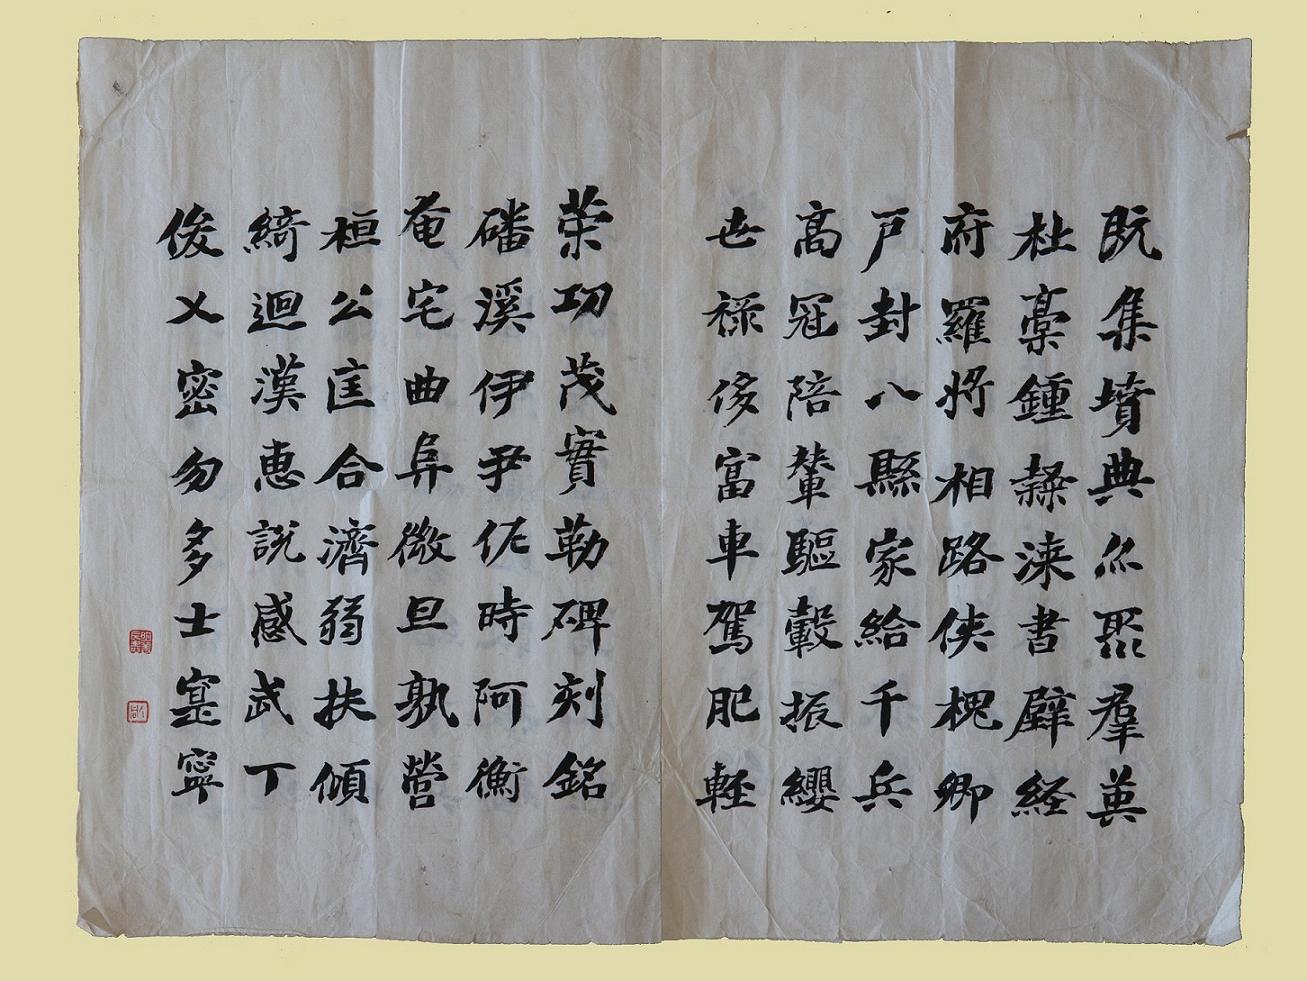 既集墳典亦聚羣英
杜稾鍾隸漆書壁経
府羅將相路俠槐卿
户封八縣家給千兵
高冠陪輦驅轂振纓
世禄侈富車駕肥軽
荣功茂實勒碑刻銘
磻溪伊尹佐時阿衡
奄宅曲阜微旦孰營
桓公匡合濟弱扶傾
綺迴漢恵説感武丁
俊乂密勿多士寔寧